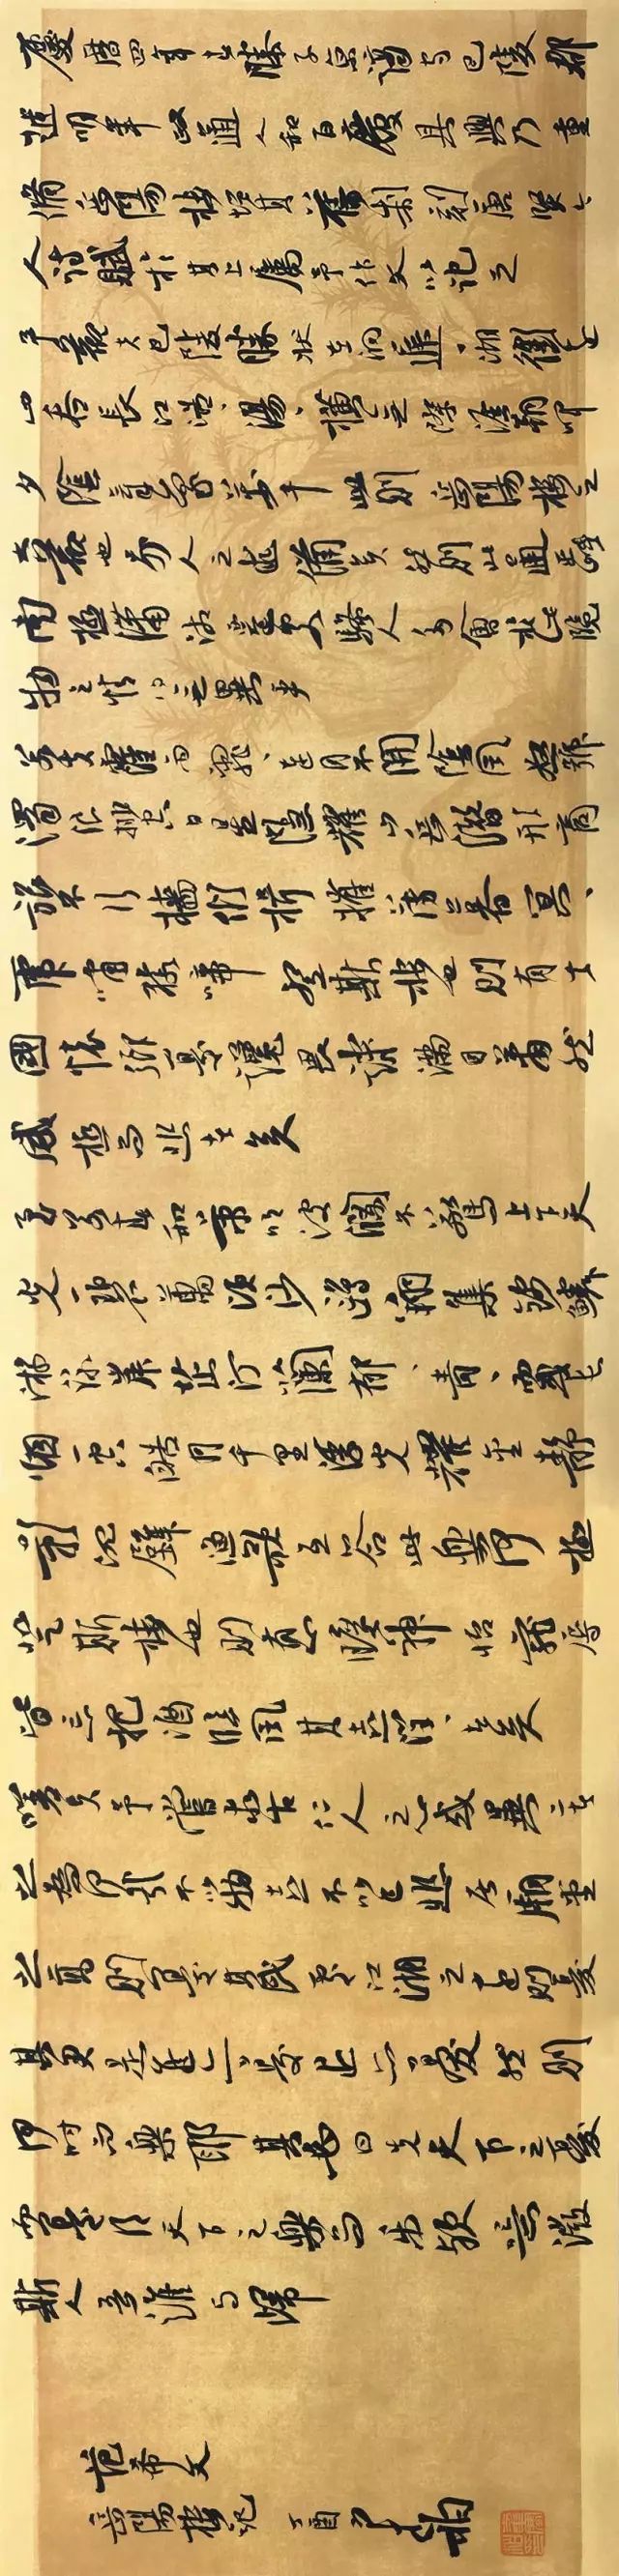 慶曆四年春滕子京謫守巴陵郡
越明年政通人和百廢具興乃重
脩岳陽樓增其舊制刻唐賢今
人詩賦於其上屬予作文以記之
予觀夫巴陵勝狀在洞庭一湖銜遠
山吞長江浩浩湯湯橫無際涯朝暉
夕陰氣象萬千此則岳陽樓之
大觀也前人之述備矣然則北通巫峽
南極瀟湘遷客騷人多會於此覽
物之情得無異乎
若夫霪雨霏霏連月不開陰風怒號
濁浪排空日星隱耀山岳潛形商
旅不行檣傾楫摧薄暮冥冥
虎嘯猿啼登斯樓也則有去
國懷鄉憂讒畏譏滿目蕭然
感極而悲者矣
至若春和景明波瀾不驚上下天
光一碧萬頃沙鷗翔集錦鱗
游泳岸芷汀蘭郁郁青青而或長
煙一空皓月千里浮光耀金靜
影沉璧漁歌互答此樂何極
登斯樓也則有心曠神怡寵辱
皆忘把酒臨風其喜洋洋者矣
嗟夫予嘗求古仁人之心或異二者
之為何哉不以物喜不以己悲居廟堂
之高則憂其民處江湖之遠則憂
其君是進亦憂退亦憂然則
何時而樂耶其必曰先天下之憂
而憂後天下之樂而樂歟噫微
斯人吾誰與歸
范希文
岳陽樓記 丁酉